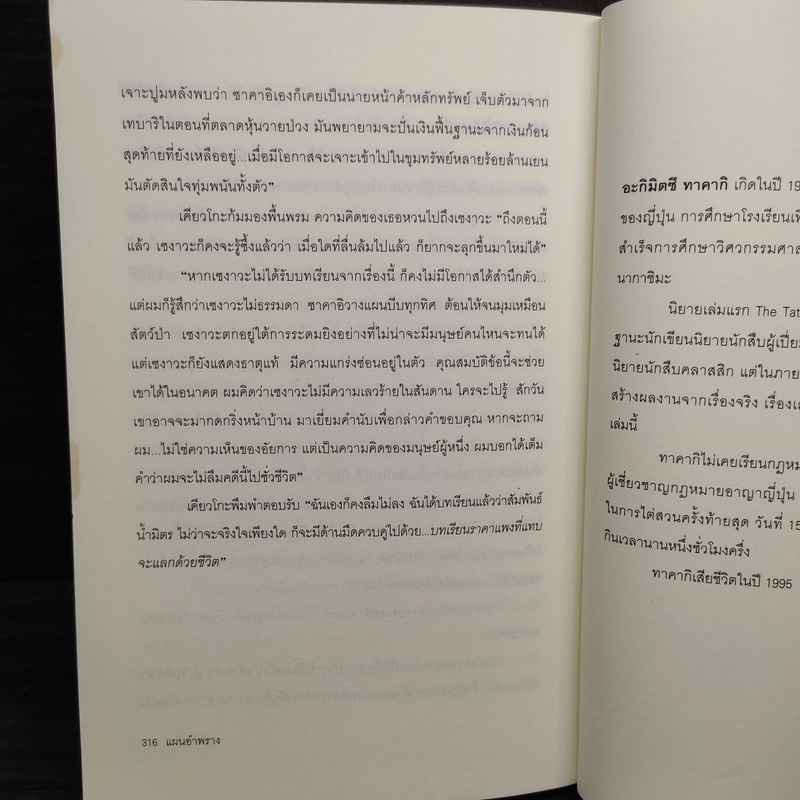 เจาะปูมหลังพบว่า ซาคาอิเองก็เคยเป็นนายหน้าค้าหลักทรัพย์ เจ็บตัวมาจาก
เทบาริในตอนที่ตลาดหุ้นวายป่วง มันพยายามจะปั่นเงินพื้นฐานะจากเงินก้อน
สุดท้ายที่ยังเหลืออยู่...เมื่อมีโอกาสจะเจาะเข้าไปในขุมทรัพย์หลายร้อยล้านเยน
มันตัดสินใจทุ่มพนันทั้งตัว”
เคียวโกะก้มมองพื้นพรม ความคิดของเธอหวนไปถึงเซงาวะ “ถึงตอนนี้
แล้ว เซงาวะก็คงจะรู้ซึ้งแล้วว่า เมื่อใดที่ลื่นล้มไปแล้ว ก็ยากจะลุกขึ้นมาใหม่ได้”
“หากเซงาวะไม่ได้รับบทเรียนจากเรื่องนี้ ก็คงไม่มีโอกาสได้สำนึกตัว...
แต่ผมก็รู้สึกว่าเซงาวะไม่ธรรมดา ซาคาอิวางแผนบีบทุกทิศ ต้อนให้จนมุมเหมือน
สัตว์ป่า เซงาวะตกอยู่ใต้การระดมยิงอย่างที่ไม่น่าจะมีมนุษย์คนไหนจะทนได้
แต่เซงาวะก็ยังแสดงธาตุแท้ มีความแกร่งซ่อนอยู่ในตัว คุณสมบัติข้อนี้จะช่วย
เขาได้ในอนาคต ผมคิดว่าเซงาวะไม่มีความเลวร้ายในสันดาน ใครจะไปรู้ สักวัน
เขาอาจจะมากดกริ่งหน้าบ้าน มาเยี่ยมคำนับเพื่อกล่าวคำขอบคุณ หากจะถาม
ผม...ไม่ใช่ความเห็นของอัยการ แต่เป็นความคิดของมนุษย์ผู้หนึ่ง ผมบอกได้เต็ม
คำว่าผมจะไม่ลืมคดีนี้ไปชั่วชีวิต”
เคียวโกะพึมพำตอบรับ “ฉันเองก็คงลืมไม่ลง ฉันได้บทเรียนแล้วว่าสัมพันธ์
น้ำมิตร ไม่ว่าจะจริงใจเพียงใด ก็จะมีด้านมืดควบคู่ไปด้วย...บทเรียนราคาแพงที่แทบ
จะแลกด้วยชีวิต”
316 แผนอำพราง
อะกิมิตซึ ทาคากิ เกิดในปี 19
ของญี่ปุ่น การศึกษาโรงเรียนเ
สำเร็จการศึกษาวิศวกรรมศาส
นากาชิมะ
นิยายเล่มแรก The Tat
ฐานะนักเขียนนิยายนักสืบผู้เปี่ยม
นิยายนักสืบคลาสสิก แต่ในภาย
สร้างผลงานจากเรื่องจริง เรื่องเ
เล่มนี้
ทาคากิไม่เคยเรียนกฎหม
ผู้เชี่ยวชาญกฎหมายอาญาญี่ปุ่น
ในการไต่สวนครั้งท้ายสุด วันที่ 15
กินเวลานานหนึ่งชั่วโมงครึ่ง
ทาคากิเสียชีวิตในปี 1995